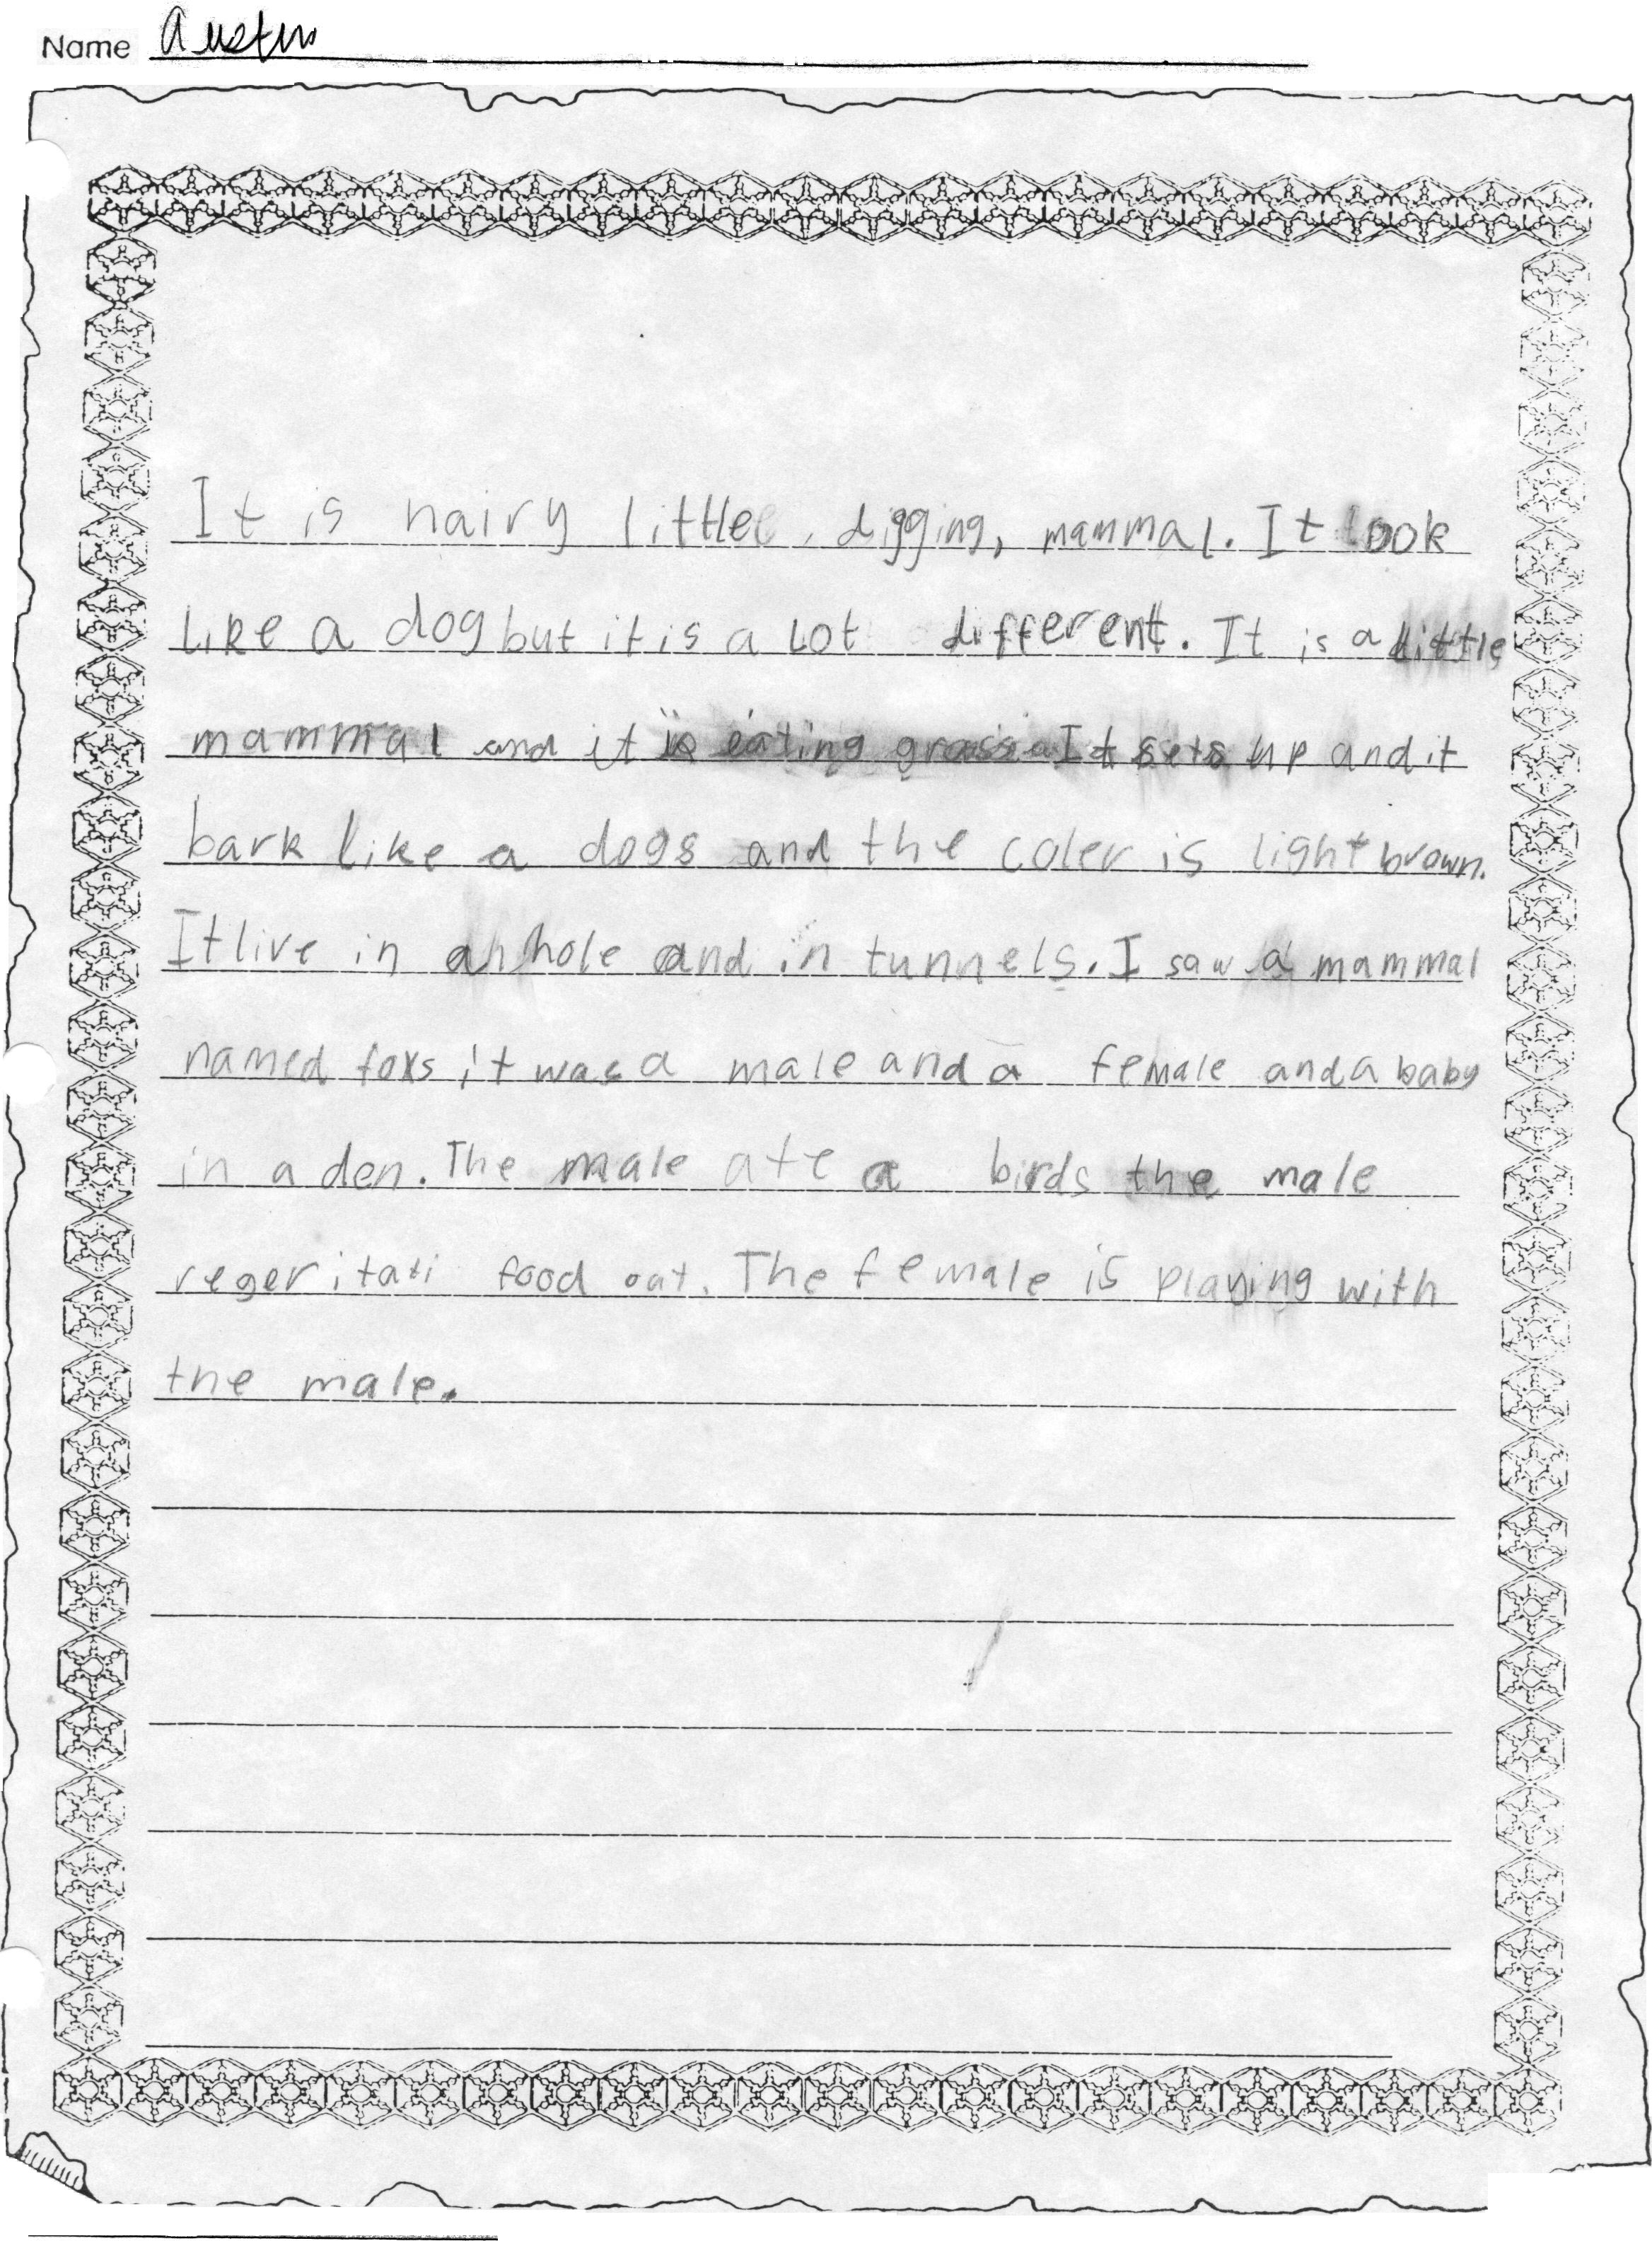 Name Austin
It is hairy little, digging, mammal. It look
like a dog but it is a lot different. It is a little
mammal and it is eating grass. It sets up and it
bark like a dogs and the coler is light brown.
It live in an hole and in tunnels. I saw a mammal
named foxs it was a male and a female and a baby
in a den. The male ate a birds the male
regeritati food out. The female is playing with
the male.